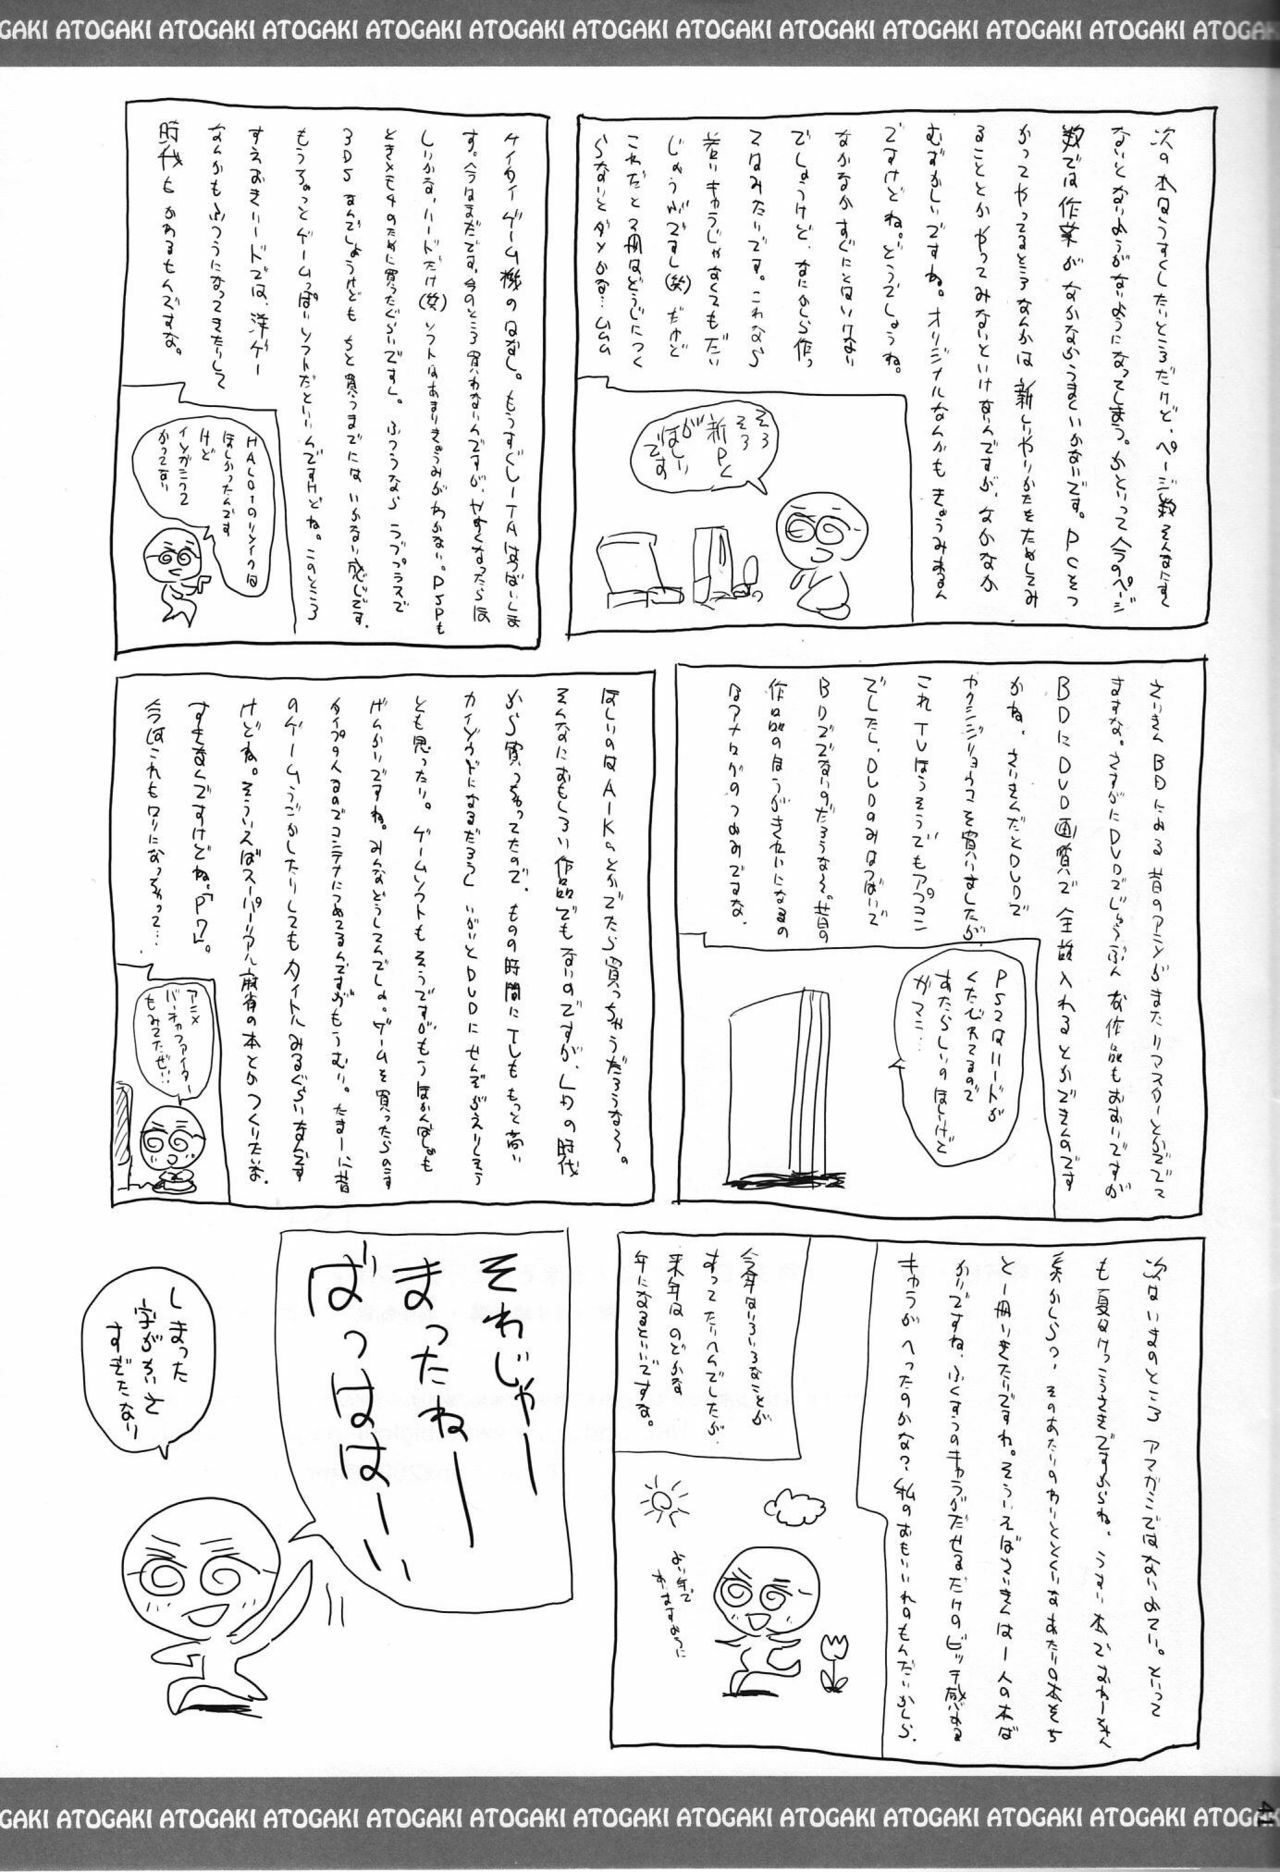 GAKI ATOGAKI ATOGAKI ATOGAKI ATOGAKI ATOGAKI ATOGAKI ATOGAKI ATOGAKI ATOGAKI ATOGAKI ATOGAKI ATOGAK
次の本はうすくしたいところだけど、ページ数そんなにすく
ないとないようがないようになってしまう。かといって今のページ
数では作業がなかなかうまくいかないです。PCをつ
かってやってるところなんかは新しいやりかたをためしてみ
ることとかやってみないといけないんですが、なかなか
むずかしいですね。オリジナルなんかもきょうみあるん
ですけどね。どうでしょうね。
なかなかすぐにとはいけない
でしょうけど、なにかしら作っ
てはみたいです。こわなら
若いキャラじゃなくてもだい
じょうぶですし(笑)だけど
これだと2冊はどうじにつく
らないとダメかな…ムムム
そろ
そろ
新PC
が
ほしい
です
ケイタイゲーム機のはなし。もうすぐVITAはつばいしま
す。今はまだです。今のところ買わないんですが、やすくなったらほ
しいかな、ハードだけ(笑)ソフトはあまりきょうみがわかない。PSPも
ときメモ4のために買ったぐらいですし。ふつうならラブプラスで
3DSなんでしょうけども、ちと買うまでにはいかない感じです。
もうちょっとゲームっぽいソフトだといいんですけどね。このところ
すえおきハードでは、洋ゲー
なんかもふつうになってきたりして
時代もかあるもんですな。
HALO1のリメイクは
ほしかったんです
けど
イソがしくって
かってない
さいきんBDによる昔のアニメがまたリマスターとかででて
ますな。さすがにDVDでじゅうぶんな作品もおおいですが
BDにDVD画質で全話入れるとかできんのです
かね。さいきんだとDVDで
ヤクジジリョウマニを買いましたが、
これTVほうそうでもアプコン
でしたし、DVDのみはつばいで
BDででないのだろうな～。昔の
作品のほうがきれいになるの
はアナログのつよみですな。
PS2はハードが
くたびれてるので
あたらしいのほしいけど
ガマン…
ほしいのはAIKaとかでたら買っちゃうだろうな～。
そんなにおもしろい作品でもないのですが、LDの時代
から買っちゃってたので、ものの時間にしてももっと高い
カイゾウドになるだろうし、いがいとDVDにせんぞがえりしそう
とも思ったり。ゲームソフトもそうですがもうほかんばしょも
げんかいですね。みんなどうしてんでしょ。ゲームを買ったらのきす
タイプの人なのでコンテナにつめてるんですがもうむり。たまーに昔
のゲームうごかしたりしてもタイトルみるぐらいなんです
けどね。そういえばスーパーリアル麻雀の本とかつくりたいな。
すきなんですけどね、「P7」。
今はこれもロリになっちゃって…
アニメ
バーチャファイター
もみてたぜ…
次はいまのところアマガミではないよてい。といって
も夏はけっこうさきですからね、うすい本でおわーきゃん
系かしら?、そのあたりのわりととくいなあたりの本をち
と一冊いきたいですね。そういえばさいきんは一人の本ば
かりですね、ふくすうのキャラがだせるだけのピッチ感がある
キャラがへったのかな?私のおもいいれのもんだいかしら。
今年はいろいろなことが
すってたいへんでしたが、
来年はのどかな
年になるといいですな。
よい年で
ありますように
それじゃー
まったねー
ばっはは～い
しまった
字がかいと
すぎたなり
GAKI ATOGAKI ATOGAKI ATOGAKI ATOGAKI ATOGAKI ATOGAKI ATOGAKI ATOGAKI ATOGAKI ATOGAKI ATOGAKI ATOG
41